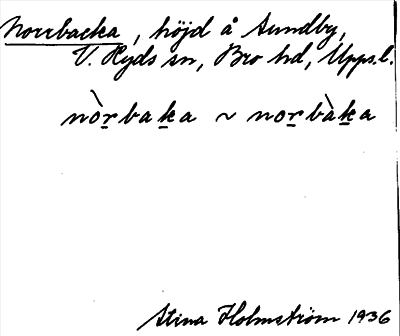 Norrbacka, höjd å Sundby,
V. Ryds sn, Bro hd, Upps.l.
nòr̲bak̲a ~ nor̲bàk̲a
Stina Holmström 1936